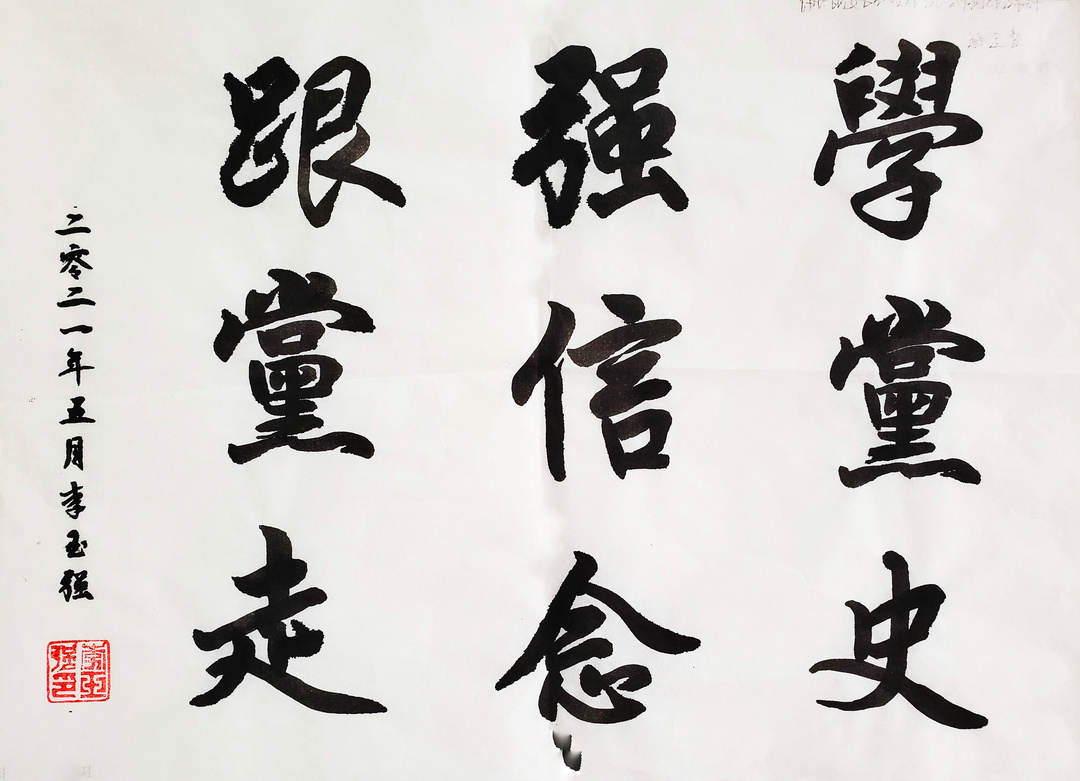 學黨史
强信念
跟黨走
二零二一年五月李玉强